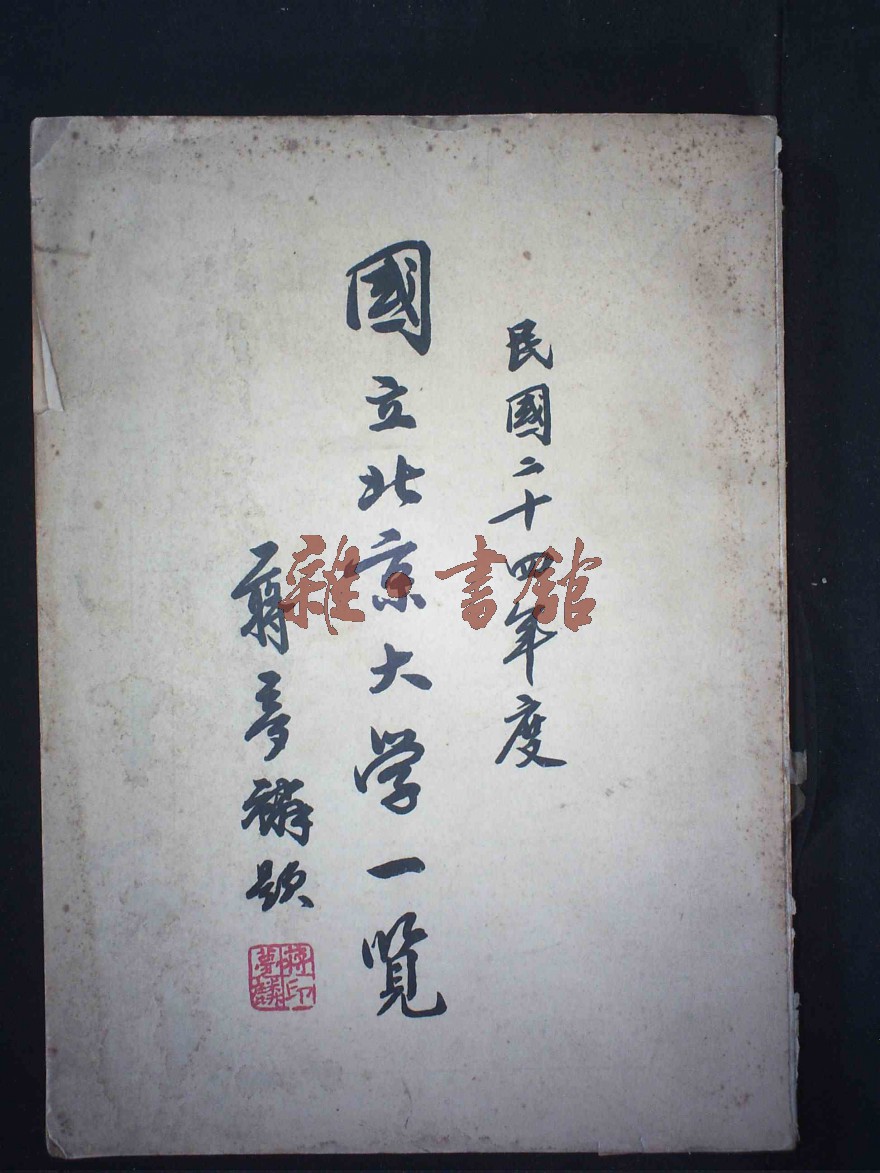 民國二十四年度
國立北京大学一覧
蔣夢麟題
蔣印夢麟
雜·書館